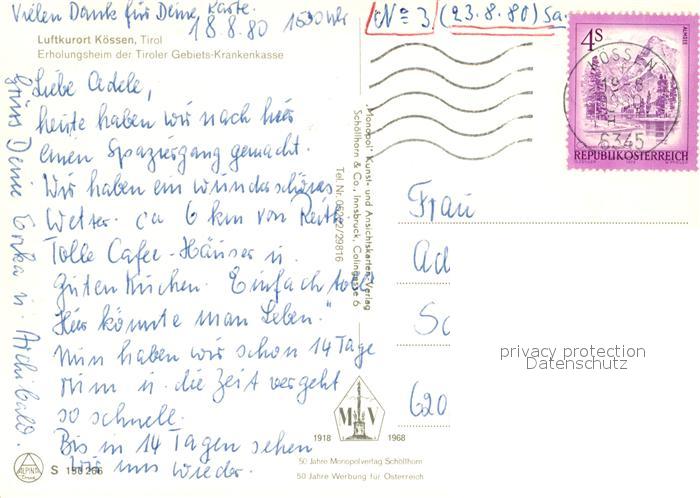 Vielen Dank für Deine Karte.
18.8.80 1530 Uhr
Nº 3 (23.8.80) Sa.
Luftkurort Kössen, Tirol
Erholungsheim der Tiroler Gebiets-Krankenkasse
Liebe Adele,
heute haben wir nach hier
einen Spaziergang gemacht.
Wir haben ein wunderschönes
Wetter. ca 6 km von Reith.
Tolle Cafee-Häuser u.
guten Kuchen. Einfach toll
Hier könnte man Leben."
Nun haben wir schon 14 Tage
rum u. die Zeit vergeht
so schnell.
Bis in 14 Tagen sehen
wir uns wieder.
Gruss Deine Erika u. Archibald.
Monopol-Kunst- und Ansichtskarten-Verlag
Schöllhorn & Co., Innsbruck, Colingasse 6
Tel. Nr. 05222/29816
4S
ALMSEE
REPUBLIK ÖSTERREICH
KÖSSEN
6345
Frau
Ad
Sc
620
privacy protection
Datenschutz
M V
1918 1968
50 Jahre Monopolverlag Schöllhorn
50 Jahre Werbung für Österreich
ALPINA
Druck
S 150266